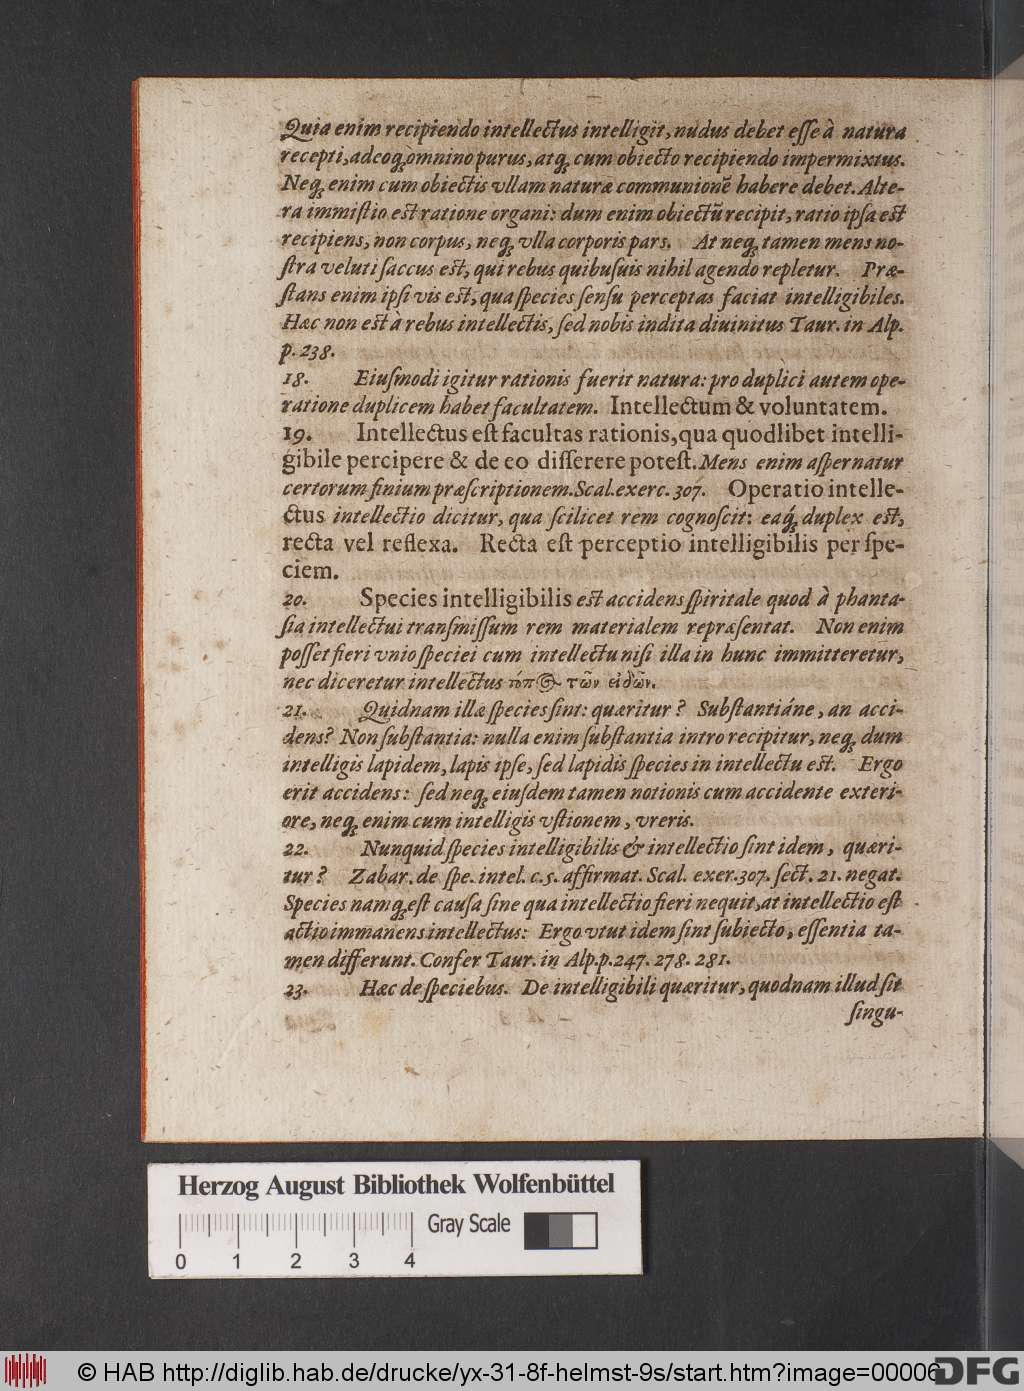 Quia enim recipiendo intellectus intelligit, nudus debet eſſe à natura
recepti, adeoq́; omnino purus, atq́; cum obiecto recipiendo impermixtus.
Neq́; enim cum obiectis vllam naturæ communionẽ habere debet. Alte-
ra immiſtio est ratione organi: dum enim obiectũ recipit, ratio ipſa est
recipiens, non corpus, neq́; vlla corporis pars. At neq́; tamen mens no-
ſtra veluti ſaccus est, qui rebus quibuſuis nihil agendo repletur. Præ-
ſtans enim ipſi vis est, qua ſpecies ſenſu perceptas faciat intelligibiles.
Hæc non est à rebus intellectis, ſed nobis indita diuinitus Taur. in Alp.
p. 238.
18. Eiuſmodi igitur rationis fuerit natura: pro duplici autem ope-
ratione duplicem habet facultatem. Intellectum & voluntatem.
19. Intellectus eſt facultas rationis, qua quodlibet intelli-
gibile percipere & de eo diſſerere poteſt. Mens enim aſpernatur
certorum finium præſcriptionem. Scal. exerc. 307. Operatio intelle-
ctus intellectio dicitur, qua ſcilicet rem cognoſcit: eaq́; duplex est,
recta vel reflexa. Recta eſt perceptio intelligibilis per ſpe-
ciem.
20. Species intelligibilis est accidens ſpiritale quod à phanta-
ſia intellectui tranſmiſſum rem materialem repræſentat. Non enim
poſſet fieri vnio ſpeciei cum intellectu niſi illa in hunc immitteretur,
nec diceretur intellectus τόπος τῶν εἰδῶν.
21. Quidnam illæ ſpecies ſint: quæritur? Subſtantiáne, an acci-
dens? Non ſubſtantia: nulla enim ſubſtantia intro recipitur, neq́; dum
intelligis lapidem, lapis ipſe, ſed lapidis ſpecies in intellectu est. Ergo
erit accidens: ſed neq́; eiuſdem tamen notionis cum accidente exteri-
ore, neq́; enim cum intelligis vſtionem, vreris.
22. Nunquid ſpecies intelligibilis & intellectio ſint idem, quæri-
tur? Zabar. de ſpe. intel. c. 5. affirmat. Scal. exer. 307. ſect. 21. negat.
Species namq́; est cauſa ſine qua intellectio fieri nequit, at intellectio eſt
actio immanens intellectus: Ergo vtut idem ſint ſubiecto, eſſentia ta-
men differunt. Confer Taur. in Alp. p. 247. 278. 281.
23. Hæc de ſpeciebus. De intelligibili quæritur, quodnam illud ſit
ſingu-
Herzog August Bibliothek Wolfenbüttel
Gray Scale
0 1 2 3 4
© HAB http://diglib.hab.de/drucke/yx-31-8f-helmst-9s/start.htm?image=00006
DFG